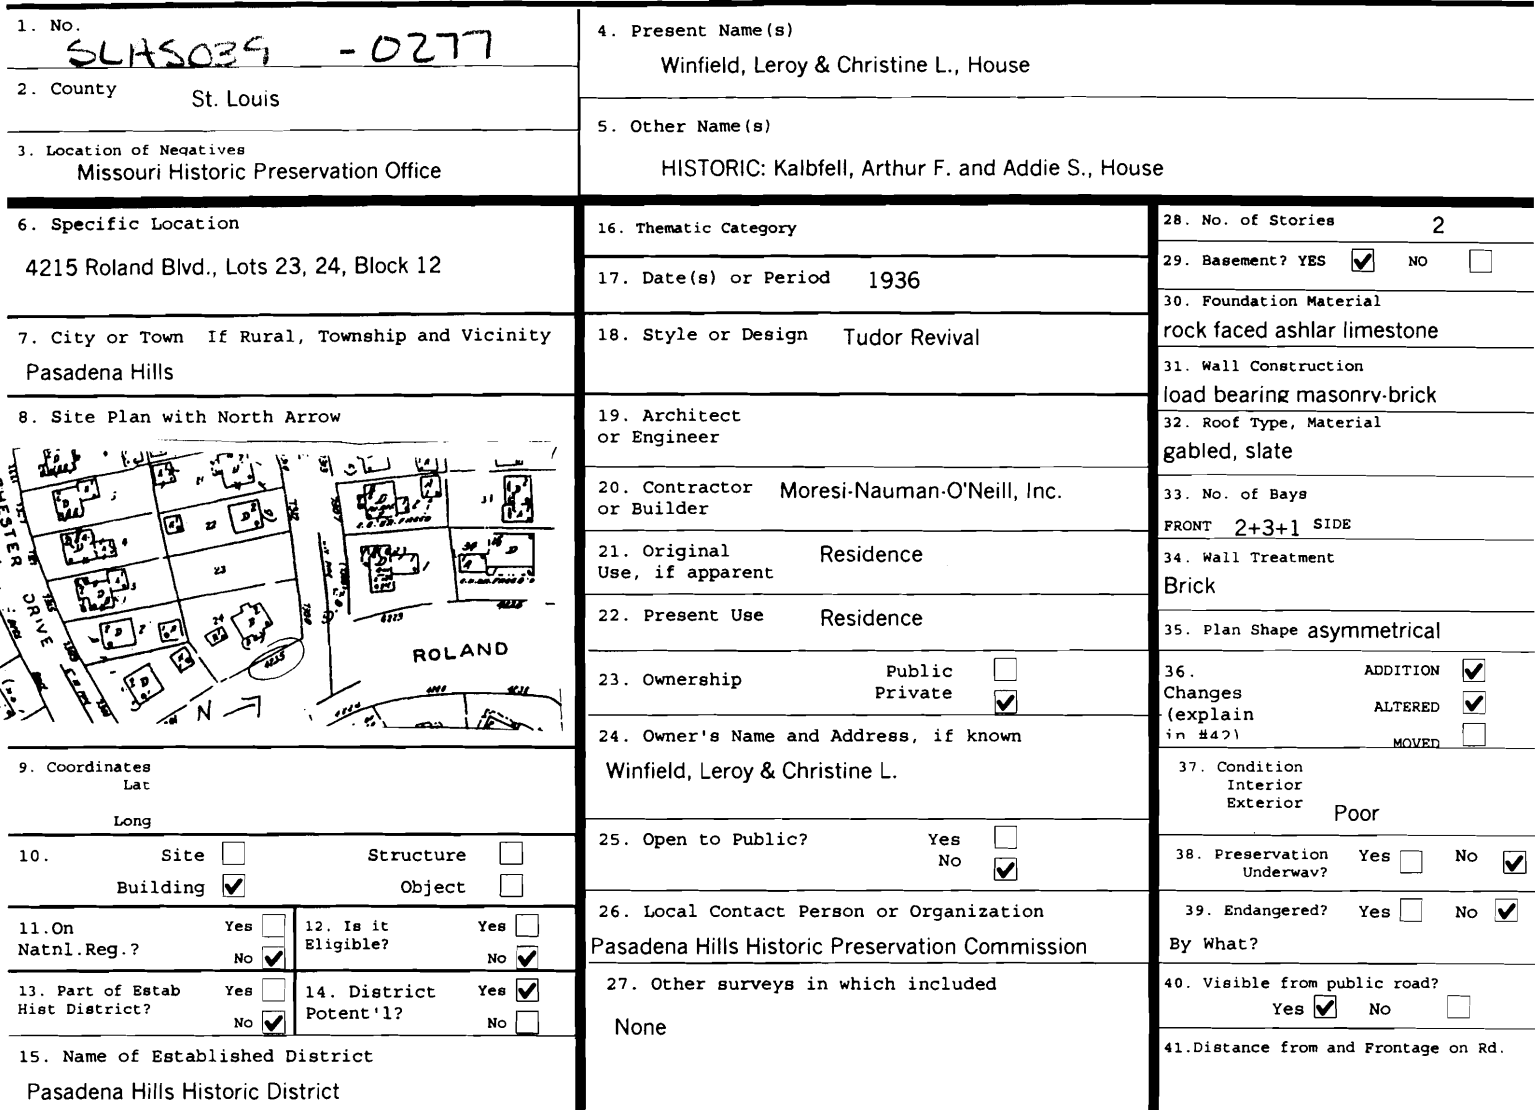 1. No.
SLHS039 -0277
2. County St. Louis
3. Location of Negatives
Missouri Historic Preservation Office
4. Present Name(s)
Winfield, Leroy & Christine L., House
5. Other Name(s)
HISTORIC: Kalbfell, Arthur F. and Addie S., House
6. Specific Location
4215 Roland Blvd., Lots 23, 24, Block 12
7. City or Town If Rural, Township and Vicinity
Pasadena Hills
8. Site Plan with North Arrow
DRIVE
22
23
24
4235
4223
4225
31
ROLAND
N
9. Coordinates
Lat
Long
10. Site Structure
Building Object
11.On Natnl.Reg.? Yes No
12. Is it Eligible? Yes No
13. Part of Estab Hist District? Yes No
14. District Potent'l? Yes No
15. Name of Established District
Pasadena Hills Historic District
16. Thematic Category
17. Date(s) or Period 1936
18. Style or Design Tudor Revival
19. Architect
or Engineer
20. Contractor Moresi-Nauman-O'Neill, Inc.
or Builder
21. Original Residence
Use, if apparent
22. Present Use Residence
23. Ownership Public
Private
24. Owner's Name and Address, if known
Winfield, Leroy & Christine L.
25. Open to Public? Yes
No
26. Local Contact Person or Organization
Pasadena Hills Historic Preservation Commission
27. Other surveys in which included
None
28. No. of Stories 2
29. Basement? YES NO
30. Foundation Material
rock faced ashlar limestone
31. Wall Construction
load bearing masonry-brick
32. Roof Type, Material
gabled, slate
33. No. of Bays
FRONT 2+3+1 SIDE
34. Wall Treatment
Brick
35. Plan Shape asymmetrical
36. ADDITION
Changes
(explain ALTERED
in #42) MOVED
37. Condition
Interior
Exterior Poor
38. Preservation Yes No
Underway?
39. Endangered? Yes No
By What?
40. Visible from public road?
Yes No
41.Distance from and Frontage on Rd.